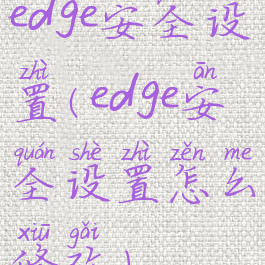 edge安全设
zhì
置(edge安
ān
quán shè zhì zěn me
全设置怎么
xiū gǎi
修改)